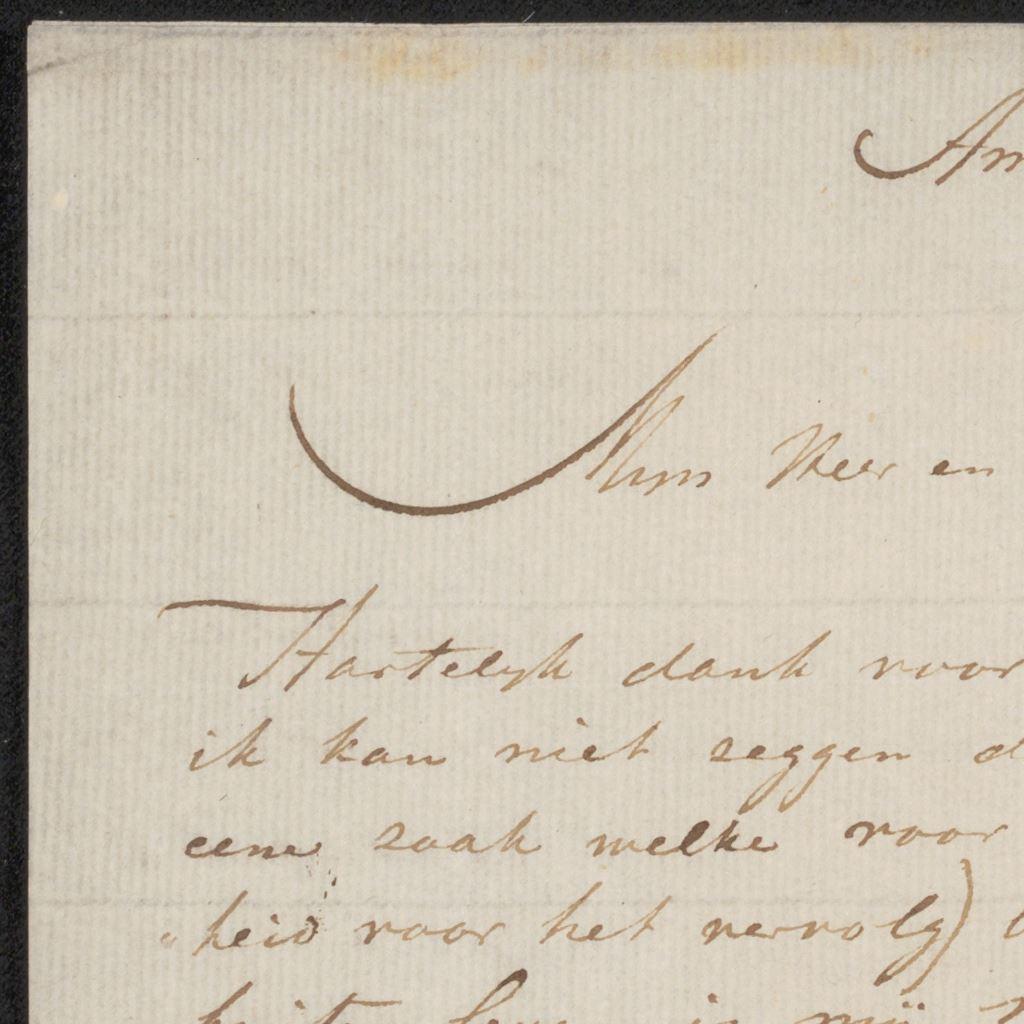 Am
Mijn Heer en
Hartelyk dank voor
ik kan niet zeggen d
eene zaak welke voor
"heid voor het vervolg)
is mij